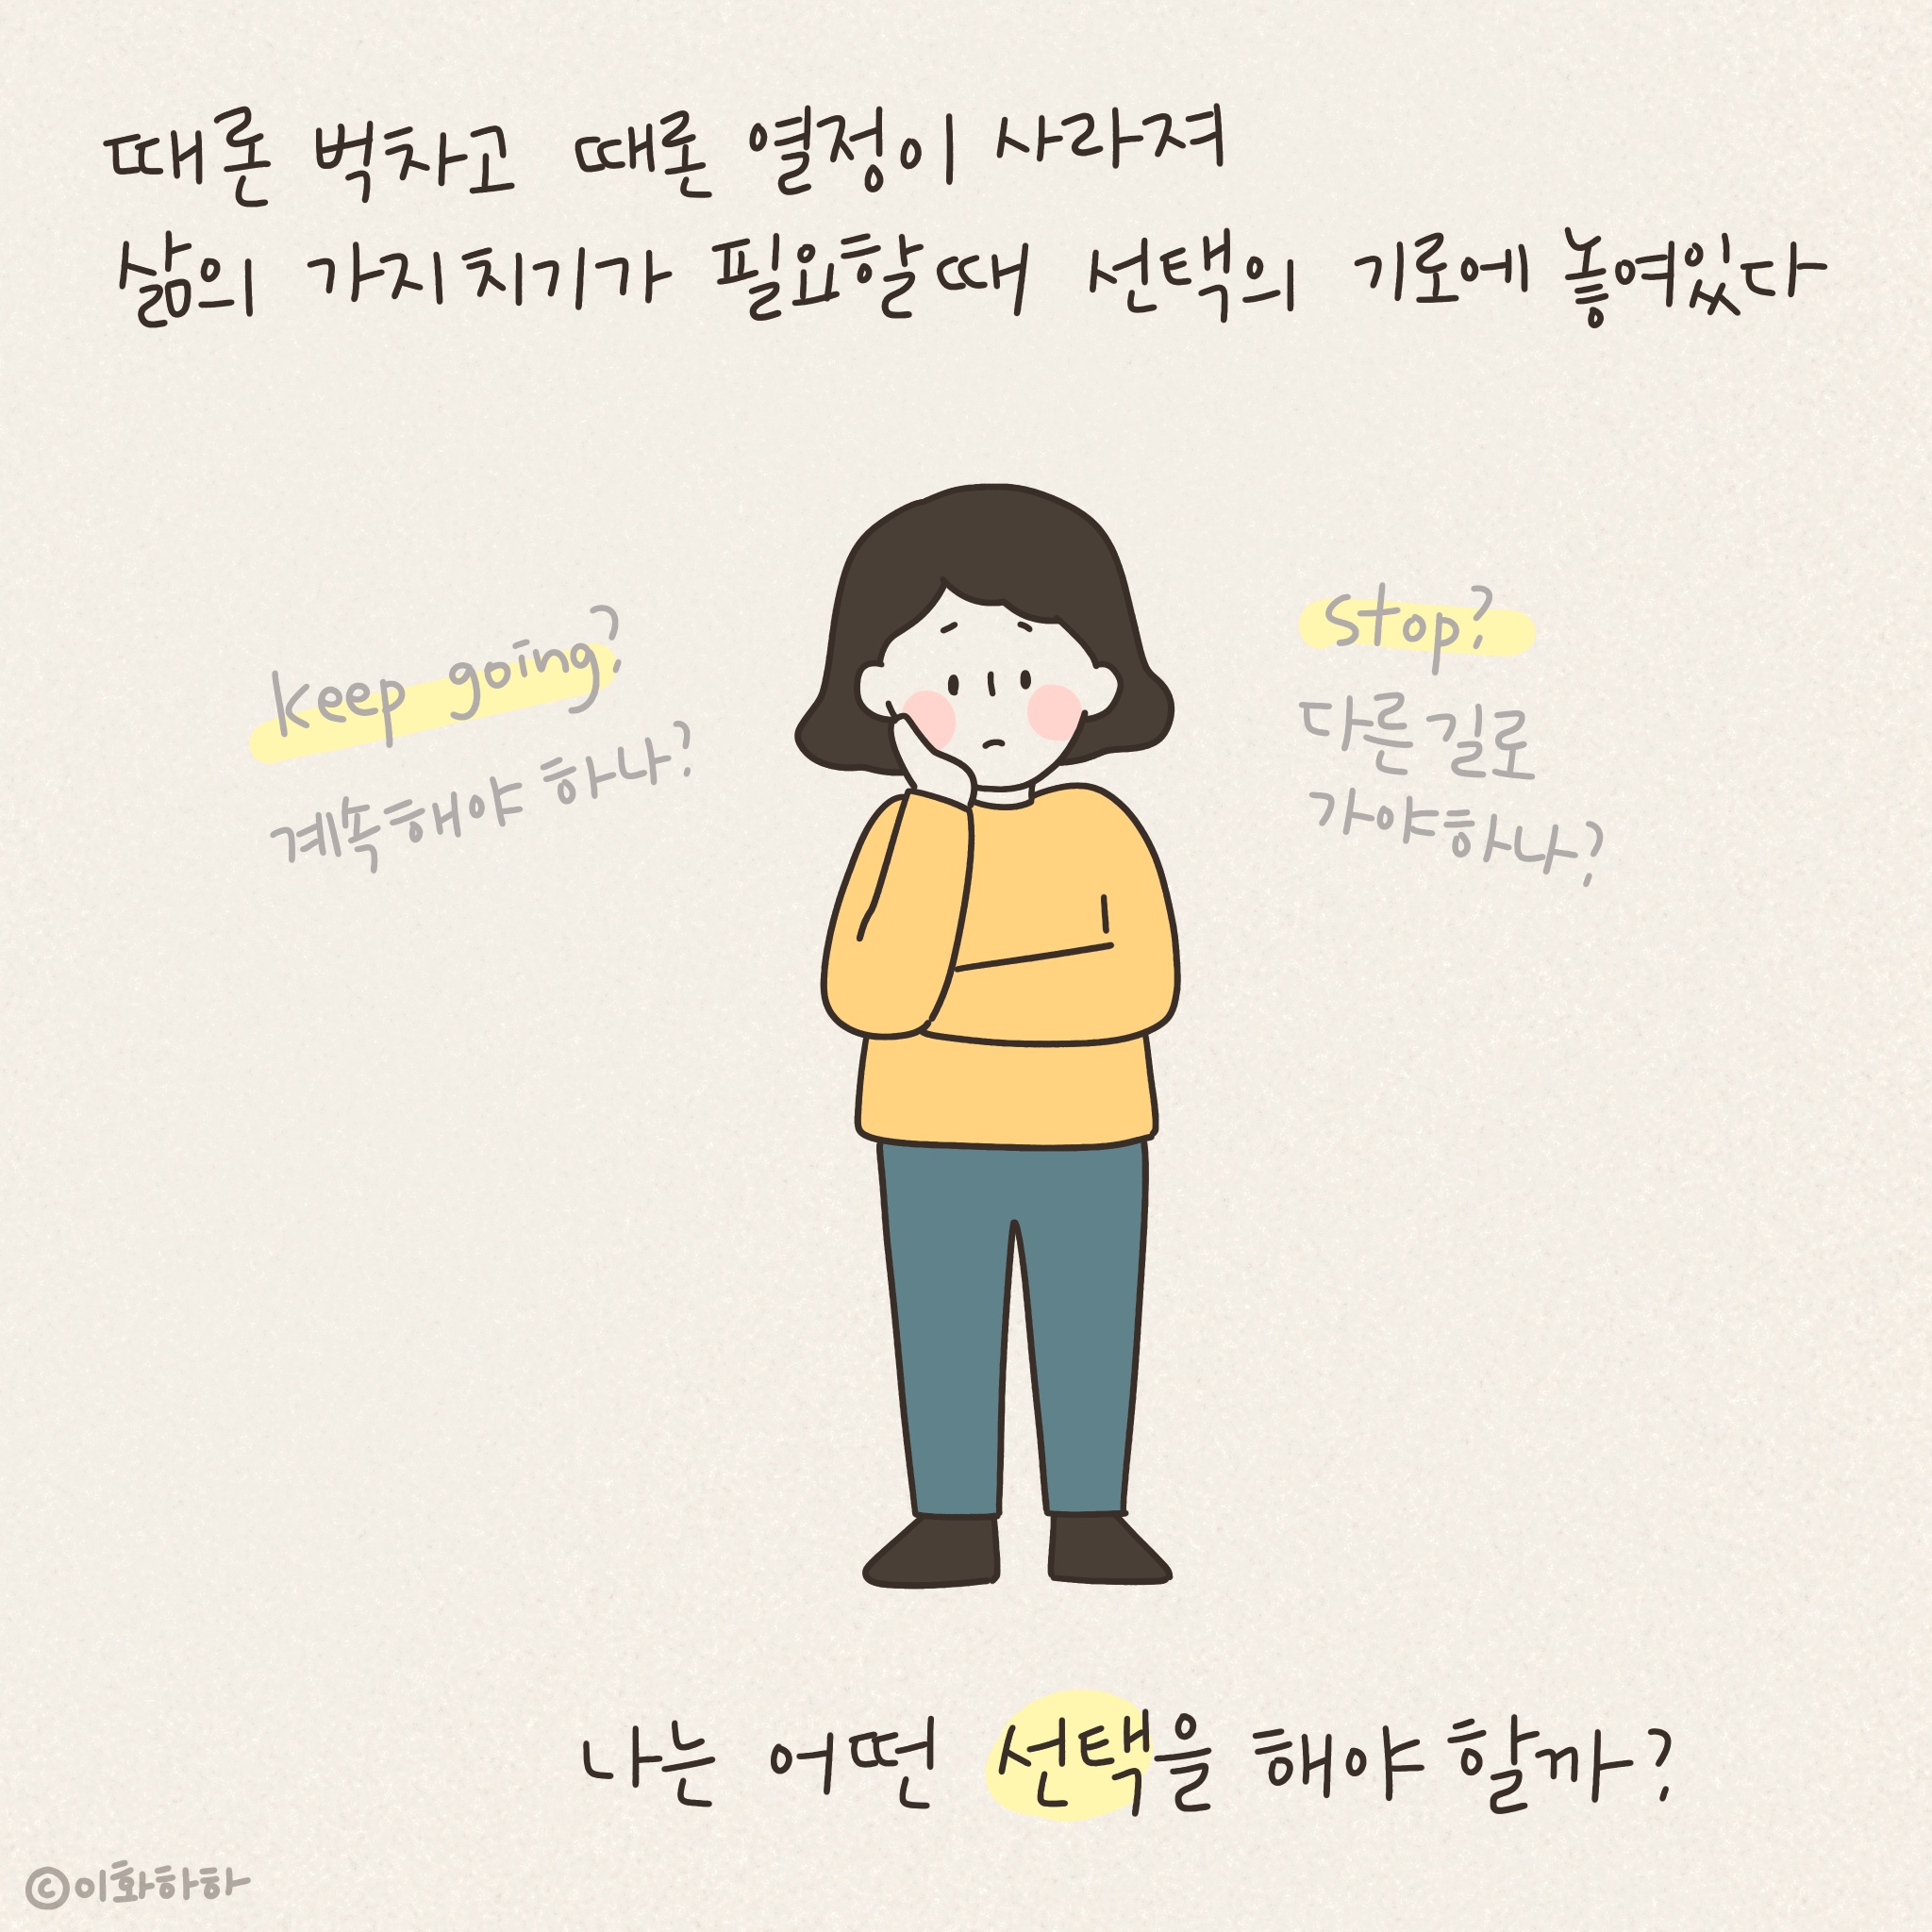 때론 벅차고 때론 열정이 사라져
삶의 가지치기가 필요할때 선택의 기로에 놓여있다
keep going?
계속해야 하나?
stop?
다른 길로
가야하나?
나는 어떤 선택을 해야 할까?
©이화하하